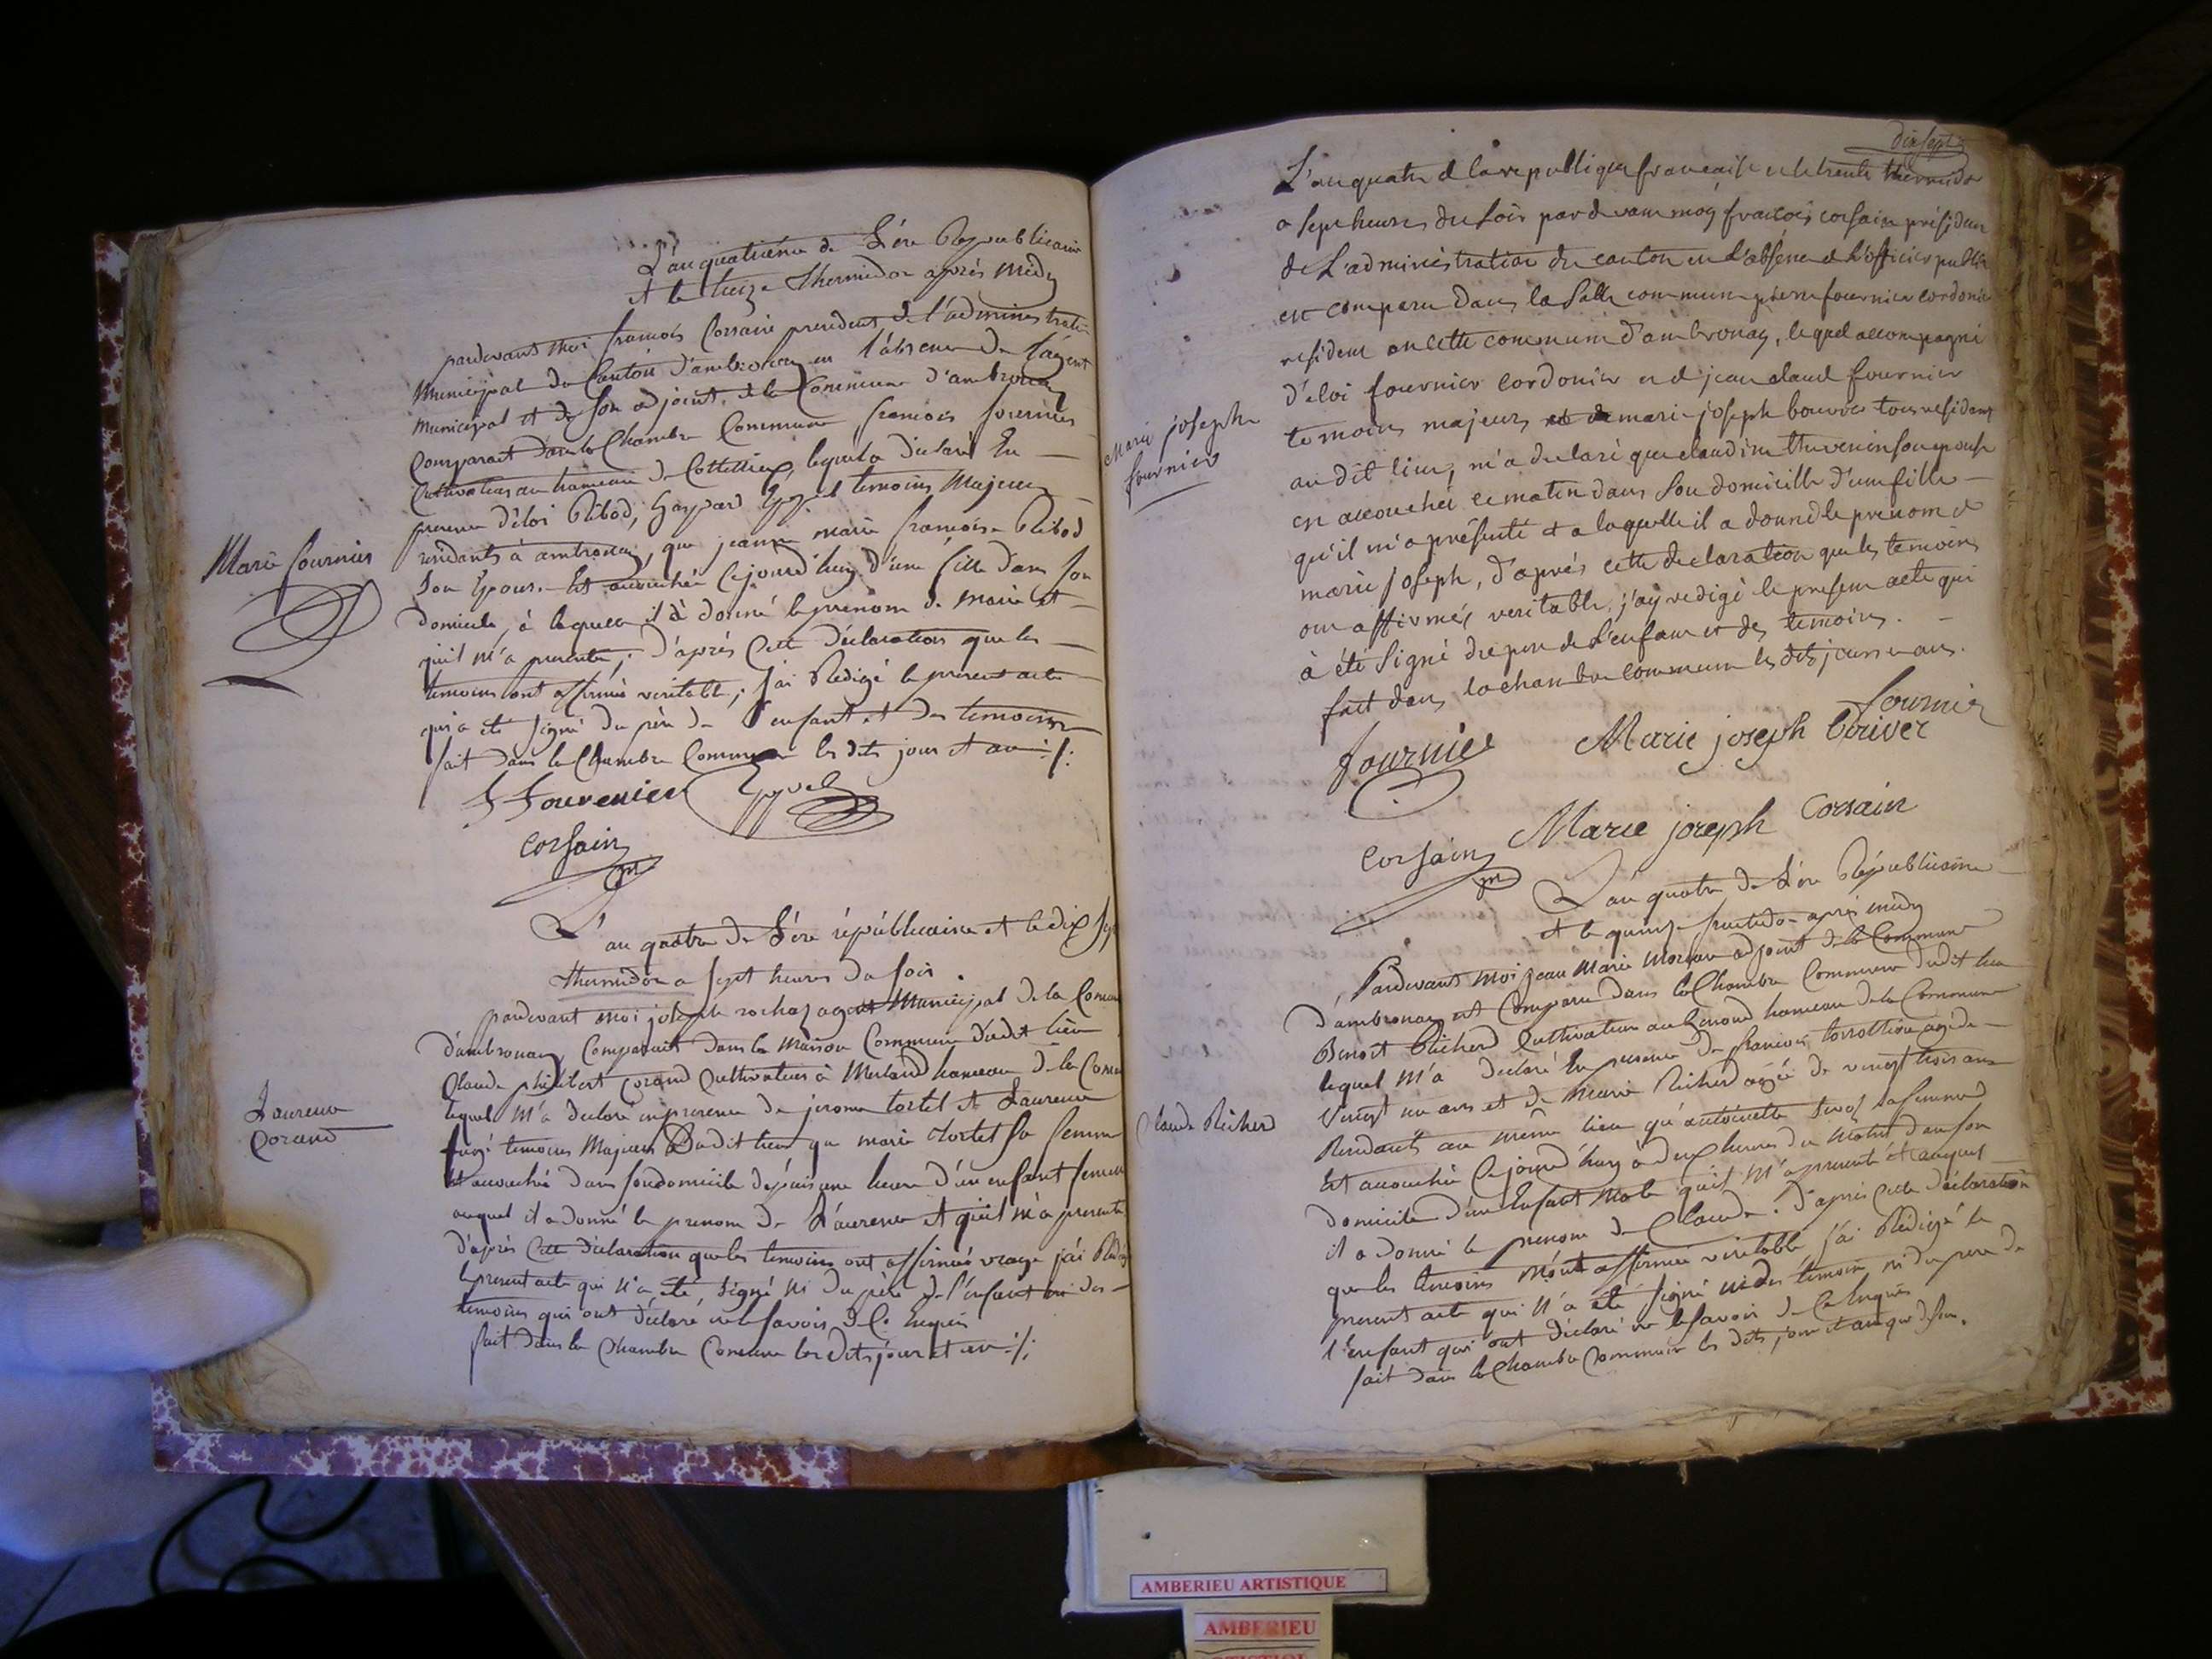 L'an quatrième de L'ère Républicaine
et le treize Thermidor après midy
pardevant moi francois Corsain president de l'administration
Municipal du Canton d'ambronay en l'absence de l'agent
municipal et de son adjoint de la Commune d'ambronay
Comparait dans la Chambre Commune francois fournier
Cultivateur au hameau de Cottellieux, lequel a declaré En
presence d'éloi Ribod, Gaspard temoins Majeurs
residants à ambronay, que jeanne marie francoise Ribod
Son Epouse Est accouchée Cejourd'huy d'une fille dans son
domicile, à laquelle il à donné le prenom de Marie et
qu'il m'a presenté; d'après Cette declaration que les
temoins ont affirmé veritable, j'ai Redigé le present acte
qui a eté signé du père de l'enfant et des temoins
fait dans la Chambre Commune les dits jour et an ·/.
Marie fournier
f Fourenier
corsain
pt
L'an quatre de L'ère républicaine et le dix sept
thermidor a sept heures du soir.
pardevant moi joseph rochas agent Municipal de la Comm
d'ambronay Comparait dans la Maison Commune dudit lieu
Claude philibert Corand Cultivateur à Merland hameau de la Comm
lequel m'a declaré en presence de jerome tortel et Laurence
temoins Majeurs Dudit lieu que marie tortel sa femme
Est accouchée dans son domicile depuis une heure d'un enfant femel
auquel il a donné le prenom de Laurence et qu'il m'a presenté
d'après Cette déclaration que les temoins ont affirmé vraye j'ai Redigé
le present acte qui n'a eté signé ni du père de l'enfant ni des
temoins qui ont déclaré ne le savoir de Ce Enquis
fait dans la Chambre Commune les dits jour et an ·/.
Laurence
Corand
dix sept
L'an quatre de la republique francaise et le trente thermidor
a sept heures du soir par devant moy francois corsain président
de L'administration du canton en L'absence de L'officier public
est comparu dans la salle commune pierre fournier cordonier
resident en cette commune d'ambronay, lequel accompagné
d'éloi fournier cordonier et de jean claude fournier
temoins majeurs et de marie joseph bouvier tous residans
au dit lieu, m'a declaré que claudine thevenin son epouse
est accouchée ce matin dans son domicille d'une fille
qu'il m'a présenté et a laquelle il a donné le prenom de
marie joseph, d'après cette declaration que les temoins
ont affirmés veritable, j'ay redigé le present acte qui
à été signé du pere de l'enfant et des temoins.
fait dans la chambre commune les dits jours et an.
Marie joseph
fournier
fournier
fournier
Marie joseph
Marie joseph Corsain
corsain
pt
L'an quatre de L'ère Républicaine
et le quinze fructidor après midy
Pardevant moi jean Marie adjoint de la Commune
d'ambronay est Comparu dans la Chambre Commune dudit lieu
Benoit Richerd Cultivateur au hameau de la Commune
lequel m'a déclaré En presence de francois agé de
vingt un ans et de Marie Richerd agée de vingt trois ans
Residants au même lieu qu'antoinette sa femme
Est accouchée Cejourd'huy à deux heures du matin dans son
domicile d'un Enfant Male qu'il m'a presenté et auquel
il a donné le prenom de Claude. d'après Cette déclaration
que les temoins m'ont affirmée veritable j'ai Rédigé le
present acte qui n'a été signé ni des temoin ni du pere de
l'Enfant qui ont déclaré ne le savoir de Ce Enquis
fait dans la Chambre Commune les dits jour et an que dessus.
Claude Richerd
AMBERIEU ARTISTIQUE
AMBERIEU